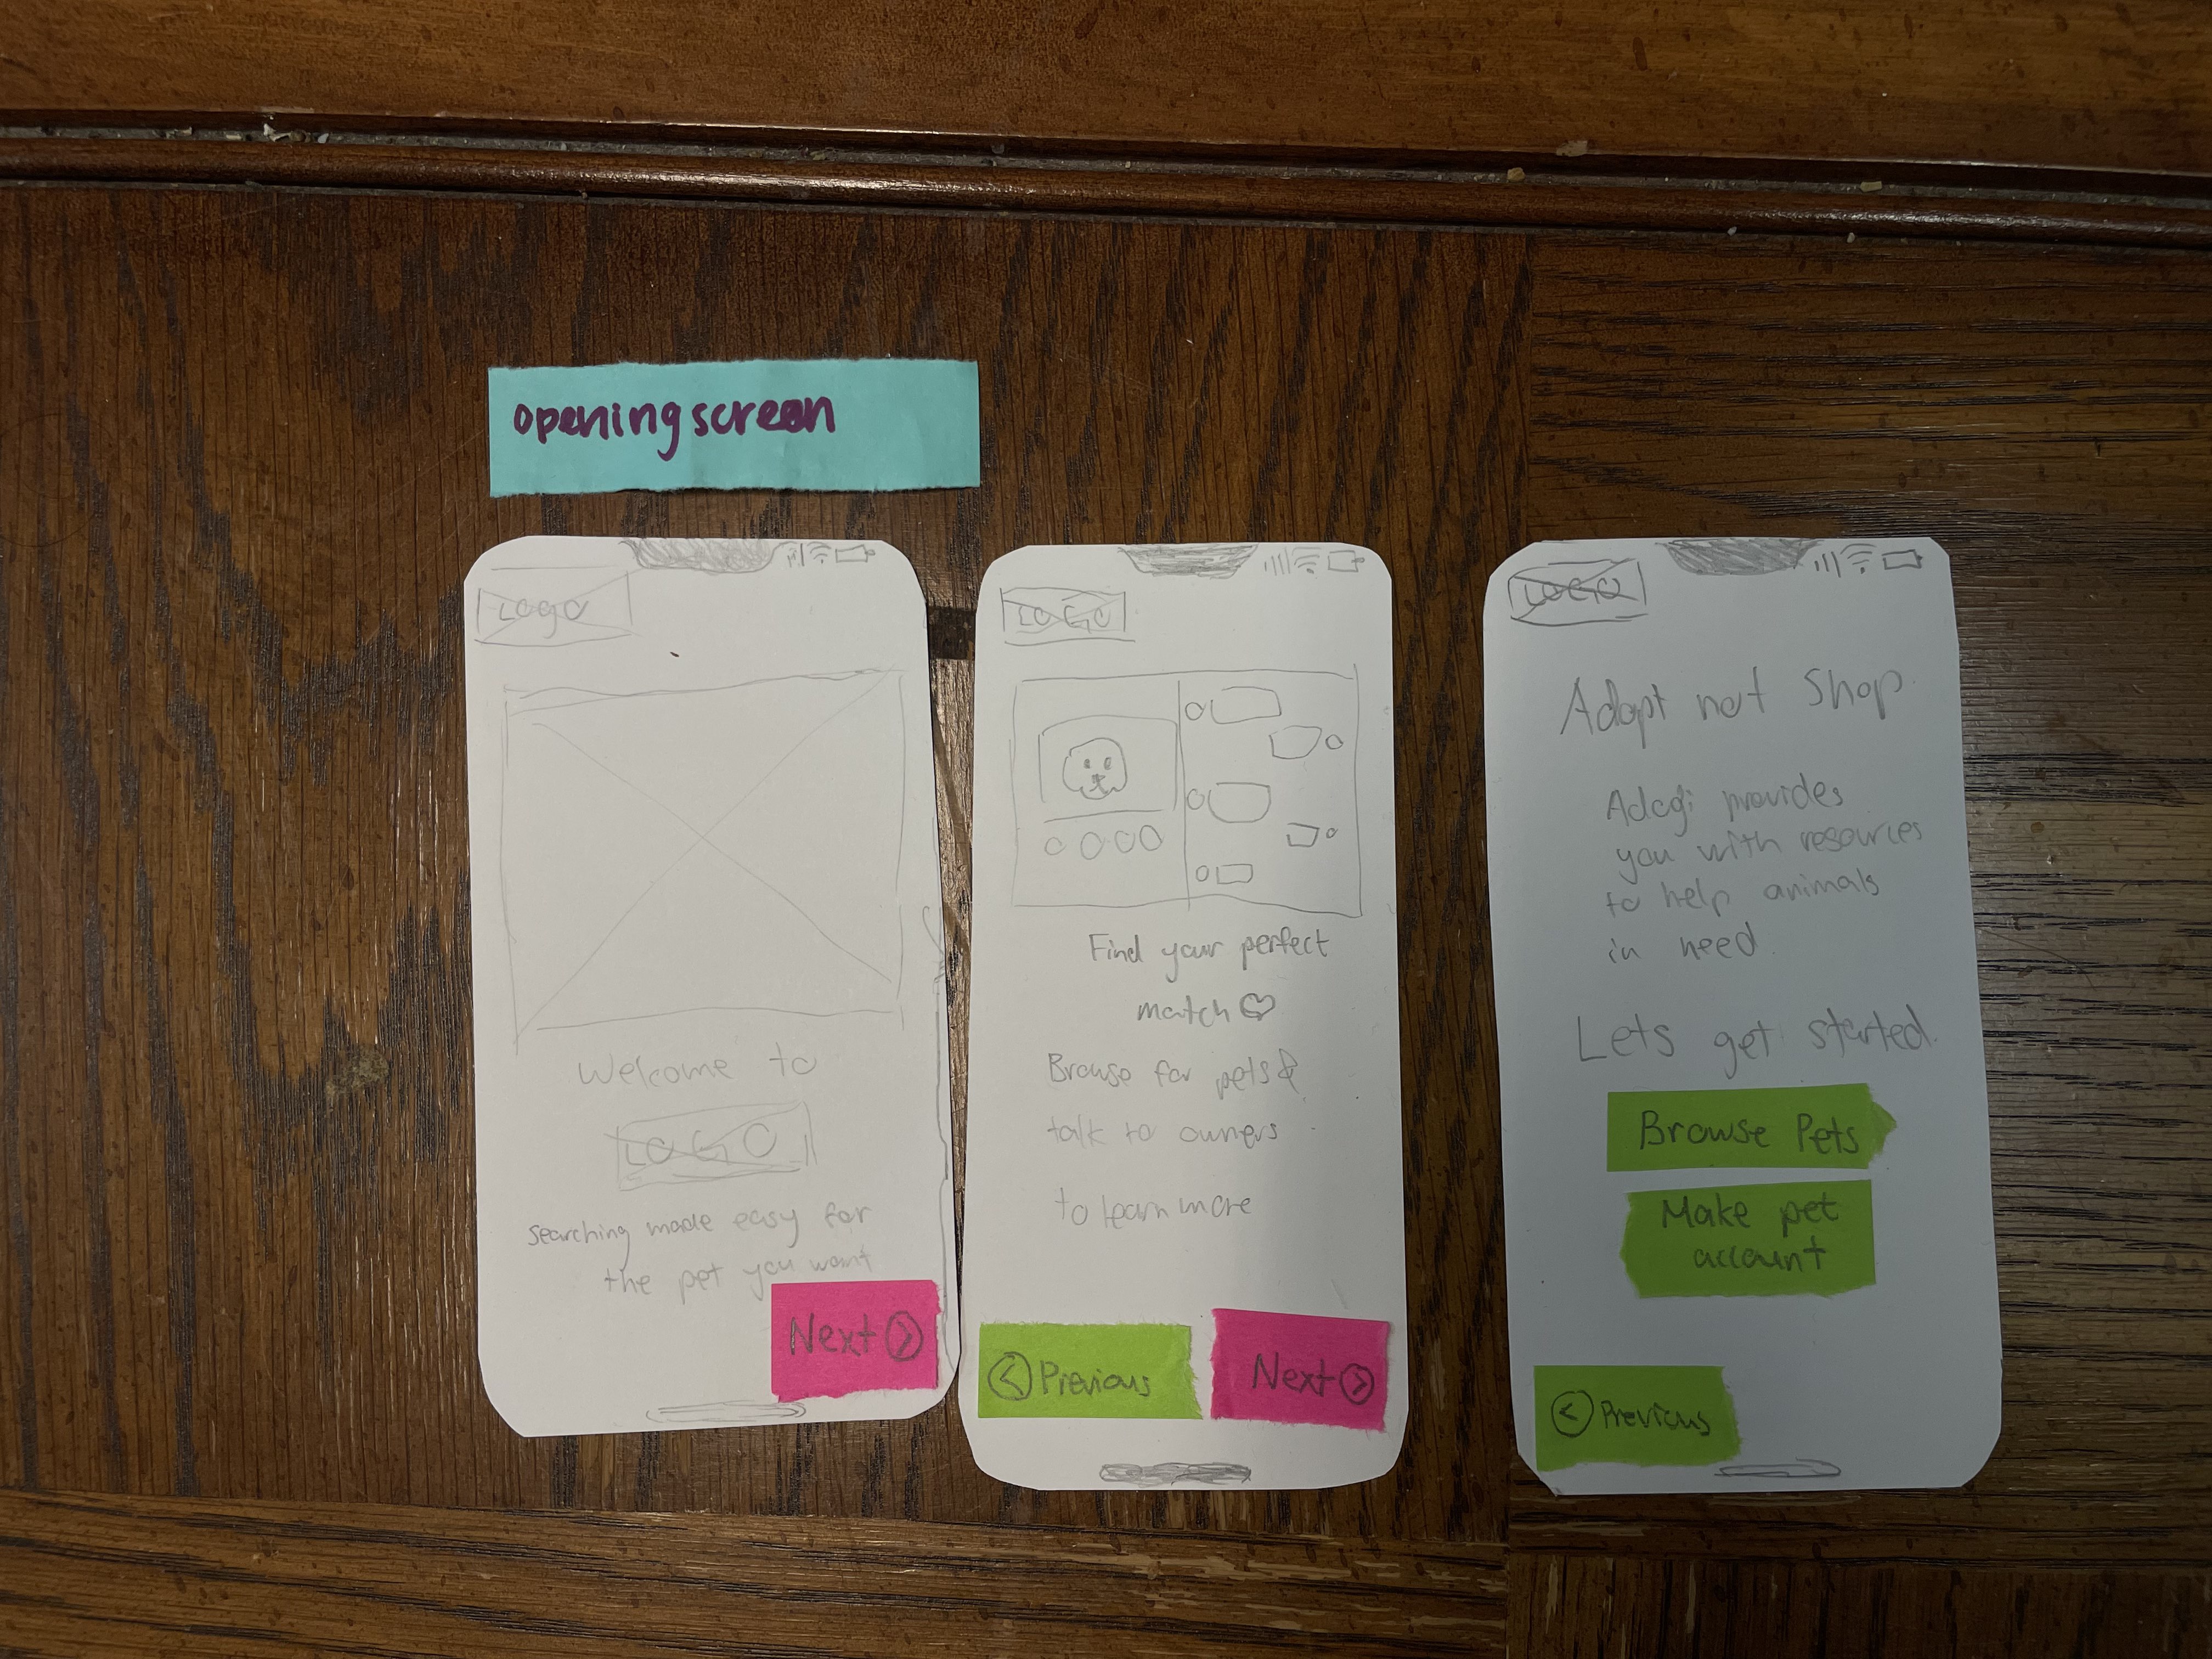 openingscreen
Logo
Welcome to
LOGO
Searching made easy for
the pet you want
Next >
LOGO
Find your perfect
match ♡
Browse for pets &
talk to owners
to learn more
< Previous
Next >
LOGO
Adopt not Shop
Adogi provides
you with resources
to help animals
in need
Lets get started.
Browse Pets
Make pet
account
< Previous